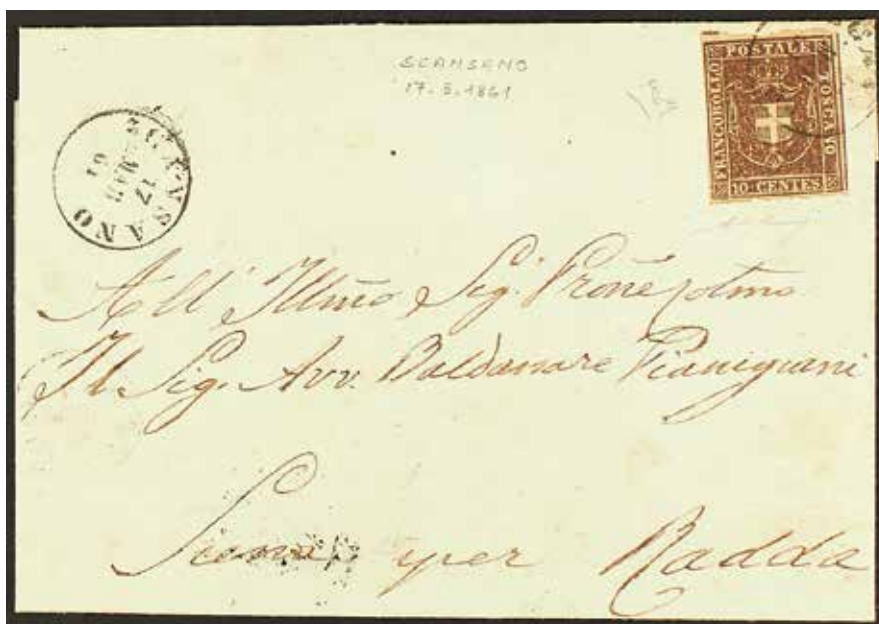 SCANSANO
17.3.1861
SCANSANO
17
MAR
61
FRANCOBOLLO POSTALE TOSCANO
10 CENTES
All' Illmo Sig. Prone
Il Sig. Avv. Baldassare Pianigiani
Siena per Radda